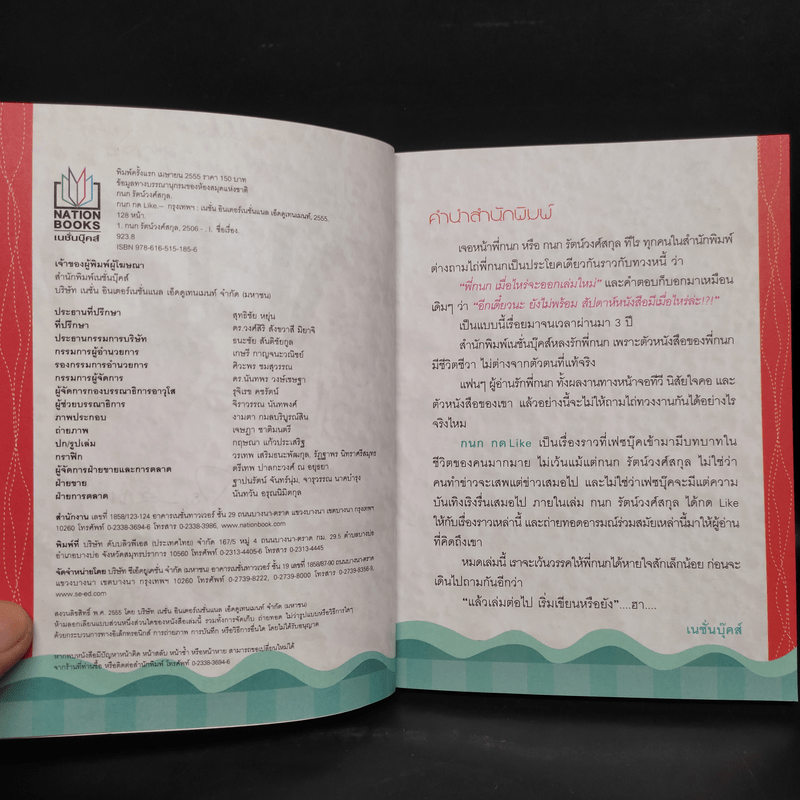 NATION
BOOKS
เนชั่นบุ๊คส์
พิมพ์ครั้งแรก เมษายน 2555 ราคา 150 บาท
ข้อมูลทางบรรณานุกรมของห้องสมุดแห่งชาติ
กนก รัตน์วงศ์สกุล.
กนก กด Like.-- กรุงเทพฯ : เนชั่น อินเตอร์เนชั่นแนล เอ็ดดูเทนเมนท์, 2555.
128 หน้า.
1. กนก รัตน์วงศ์สกุล, 2506 - . I. ชื่อเรื่อง.
923.8
ISBN 978-616-515-185-6
เจ้าของผู้พิมพ์ผู้โฆษณา
สำนักพิมพ์เนชั่นบุ๊คส์
บริษัท เนชั่น อินเตอร์เนชั่นแนล เอ็ดดูเทนเมนท์ จำกัด (มหาชน)
ประธานที่ปรึกษา สุทธิชัย หยุ่น
ที่ปรึกษา ดร.วงศ์สิริ สังขวาสี มิยาจิ
ประธานกรรมการบริษัท ธนะชัย สันติชัยกูล
กรรมการผู้อำนวยการ เกษรี กาญจนะวณิชย์
รองกรรมการอำนวยการ ศิวะพร ชมสุวรรณ
กรรมการผู้จัดการ ดร.นันทพร วงษ์เชษฐา
ผู้จัดการกองบรรณาธิการอาวุโส รุจิเรข คชรัตน์
ผู้ช่วยบรรณาธิการ จิราวรรณ นันทพงศ์
ภาพประกอบ งามตา กมลบริบูรณ์สิน
ถ่ายภาพ เจษฎา ชาติมนตรี
ปก/รูปเล่ม กฤษณา แก้วประเสริฐ
กราฟิก วรเทพ เสริมธนะพัฒกุล, รัฏฐาพร นิทราศรีสมุทร
ผู้จัดการฝ่ายขายและการตลาด ตรีเทพ ปาลกะวงศ์ ณ อยุธยา
ฝ่ายขาย ฐาปนรัตน์ จันทร์นุ่ม, จารุวรรณ นาคบำรุง
ฝ่ายการตลาด นันทวัน อรุณนิมิตกุล
สำนักงาน เลขที่ 1858/123-124 อาคารเนชั่นทาวเวอร์ ชั้น 29 ถนนบางนา-ตราด แขวงบางนา เขตบางนา กรุงเทพฯ
10260 โทรศัพท์ 0-2338-3694-6 โทรสาร 0-2338-3986, www.nationbook.com
พิมพ์ที่ บริษัท ดับบลิวพีเอส (ประเทศไทย) จำกัด 167/5 หมู่ 4 ถนนบางนา-ตราด กม. 29.5 ตำบลบางบ่อ
อำเภอบางบ่อ จังหวัดสมุทรปราการ 10560 โทรศัพท์ 0-2313-4405-6 โทรสาร 0-2313-4445
จัดจำหน่ายโดย บริษัท ซีเอ็ดยูเคชั่น จำกัด (มหาชน) อาคารเนชั่นทาวเวอร์ ชั้น 19 เลขที่ 1858/87-90 ถนนบางนา-ตราด
แขวงบางนา เขตบางนา กรุงเทพฯ 10260 โทรศัพท์ 0-2739-8222, 0-2739-8000 โทรสาร 0-2739-8356-9,
www.se-ed.com
สงวนลิขสิทธิ์ พ.ศ. 2555 โดย บริษัท เนชั่น อินเตอร์เนชั่นแนล เอ็ดดูเทนเมนท์ จำกัด (มหาชน)
ห้ามลอกเลียนแบบส่วนหนึ่งส่วนใดของหนังสือเล่มนี้ รวมทั้งการจัดเก็บ ถ่ายทอด ไม่ว่ารูปแบบหรือวิธีการใดๆ
ด้วยกระบวนการทางอิเล็กทรอนิกส์ การถ่ายภาพ การบันทึก หรือวิธีการอื่นใด โดยไม่ได้รับอนุญาต
หากพบหนังสือมีปัญหาหน้าติด หน้าสลับ หน้าซ้ำ หรือหน้าหาย สามารถขอเปลี่ยนใหม่ได้
จากร้านที่ท่านซื้อ หรือติดต่อสำนักพิมพ์ โทรศัพท์ 0-2338-3694-6
คำนำสำนักพิมพ์
เจอหน้าพี่กนก หรือ กนก รัตน์วงศ์สกุล ทีไร ทุกคนในสำนักพิมพ์
ต่างถามไถ่พี่กนกเป็นประโยคเดียวกันราวกับทวงหนี้ ว่า
“พี่กนก เมื่อไหร่จะออกเล่มใหม่” และคำตอบก็บอกมาเหมือน
เดิมๆ ว่า “อีกเดี๋ยวนะ ยังไม่พร้อม สัปดาห์หนังสือมีเมื่อไหร่ล่ะ!?!”
เป็นแบบนี้เรื่อยมาจนเวลาผ่านมา 3 ปี
สำนักพิมพ์เนชั่นบุ๊คส์หลงรักพี่กนก เพราะตัวหนังสือของพี่กนก
มีชีวิตชีวา ไม่ต่างจากตัวตนที่แท้จริง
แฟนๆ ผู้อ่านรักพี่กนก ทั้งผลงานทางหน้าจอทีวี นิสัยใจคอ และ
ตัวหนังสือของเขา แล้วอย่างนี้จะไม่ให้ถามไถ่ทวงงานกันได้อย่างไร
จริงไหม
กนก กด Like เป็นเรื่องราวที่เฟซบุ๊คเข้ามามีบทบาทใน
ชีวิตของคนมากมาย ไม่เว้นแม้แต่กนก รัตน์วงศ์สกุล ไม่ใช่ว่า
คนทำข่าวจะเสพแต่ข่าวเสมอไป และไม่ใช่ว่าเฟซบุ๊คจะมีแต่ความ
บันเทิงเริงรื่นเสมอไป ภายในเล่ม กนก รัตน์วงศ์สกุล ได้กด Like
ให้กับเรื่องราวเหล่านี้ และถ่ายทอดอารมณ์ร่วมสมัยเหล่านี้มาให้ผู้อ่าน
ที่คิดถึงเขา
หมดเล่มนี้ เราจะเว้นวรรคให้พี่กนกได้หายใจสักเล็กน้อย ก่อนจะ
เดินไปถามกันอีกว่า
“แล้วเล่มต่อไป เริ่มเขียนหรือยัง”....ฮา....
เนชั่นบุ๊คส์